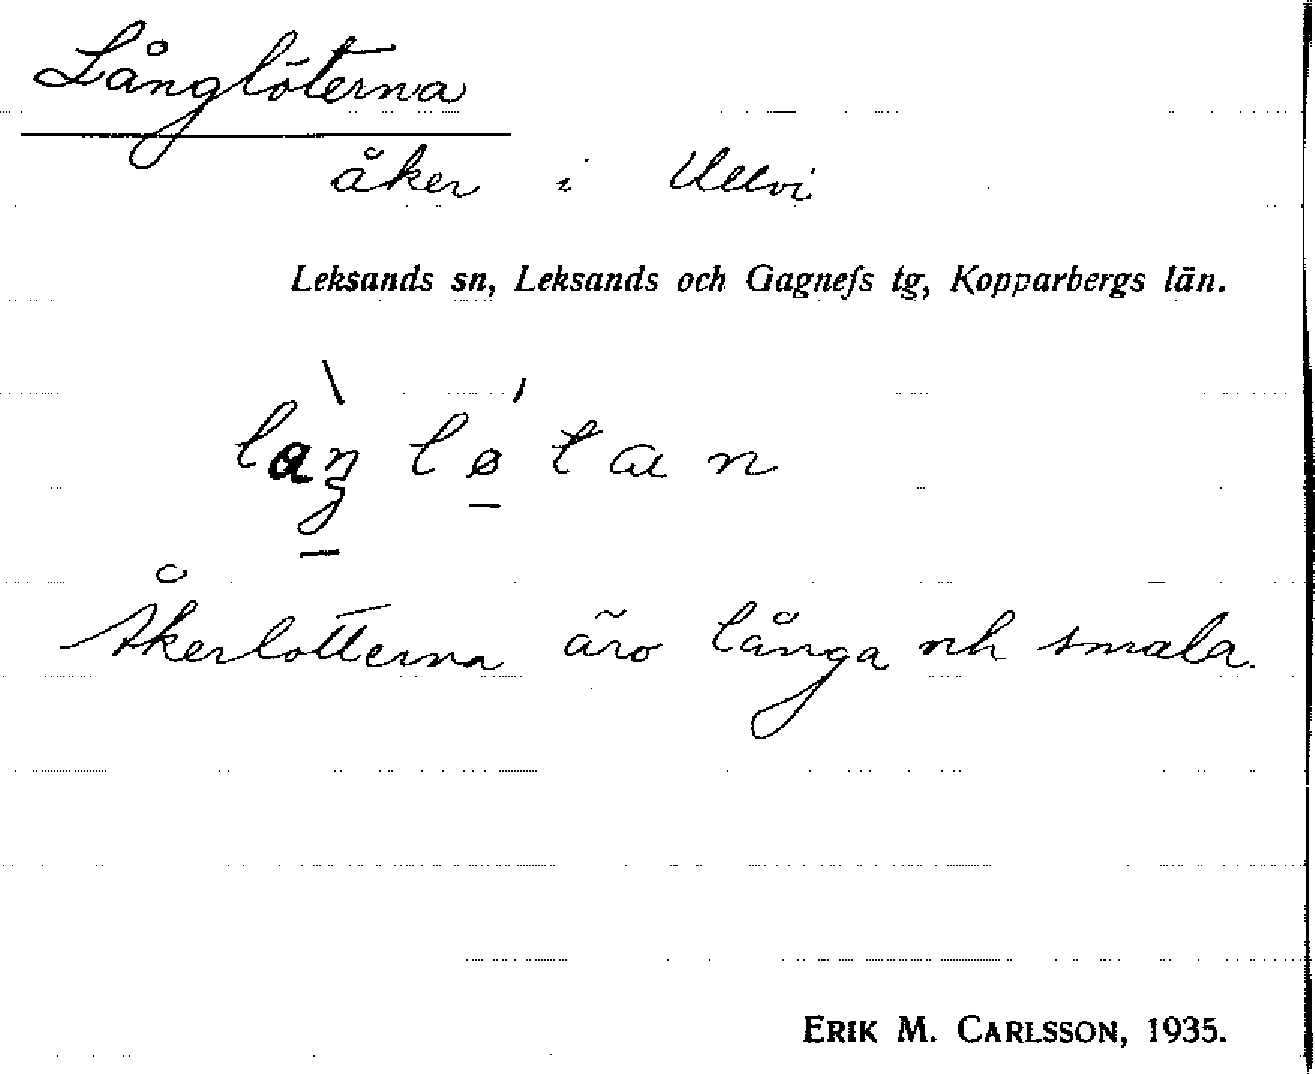 Långlöterna
åker i Ullvi
Leksands sn, Leksands och Gagnefs tg, Kopparbergs län.
Åkerlotterna äro långa och smala.
ERIK M. CARLSSON, 1935.